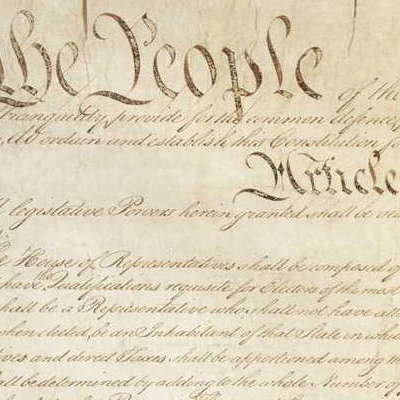 the People of the
tranquility, provide for the common defence,
do ordain and establish this Constitution for
Article
legislative Powers herein granted shall be
House of Representatives shall be composed of
have the Qualifications requisite for Electors of the most
shall be a Representative who shall not have
when elected, be an Inhabitant of that State in
and direct Taxes shall be apportioned among
be determined by adding to the whole Number of